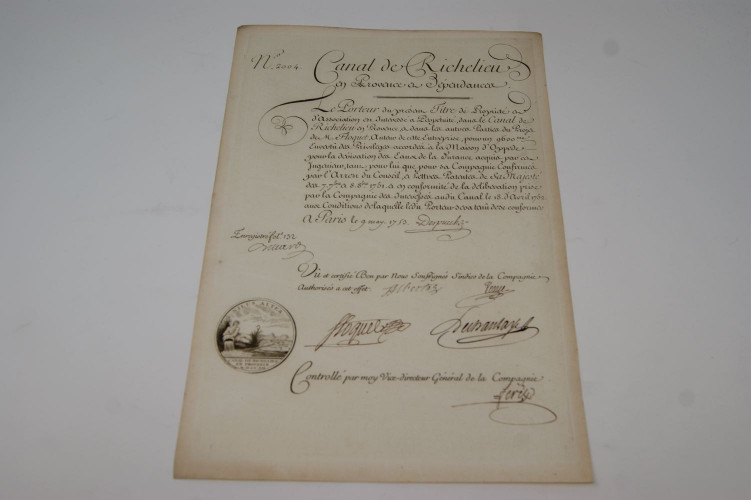 N.º 2004.
Canal de Richelieu
en Provence et Dépendances
Le Porteur du présent Titre de Propriété et
d'Association est Intéressé à Perpétuité, dans le Canal de
Richelieu en Provence et dans les autres Parties du Projet
de M. Floquet, Auteur de cette Entreprise, pour un 9600.me
En vertu des Privilèges accordés à la Maison d'Oppede
pour la dérivation des Eaux de la Durance acquis par cet
Ingénieur, tant pour lui que pour sa Compagnie Confirmés
par l'Arrest du Conseil, et Lettres Patentes de Sa Majesté
des 7. 7.bre et 8. 8.bre 1751. et en conformité de la délibération prise
par la Compagnie des Intéressés audit Canal le 18. d'Avril 1752
aux Conditions de laquelle ledit Porteur sera tenu de se conformer
A Paris le 9 may 1753.
Enregistré fol. 132
Vû et certifié Bon par Nous Soussignés Sindics de la Compagnie
Authorisés à cet effet.
Floquet
Controllé par moy Vice-directeur Général de la Compagnie